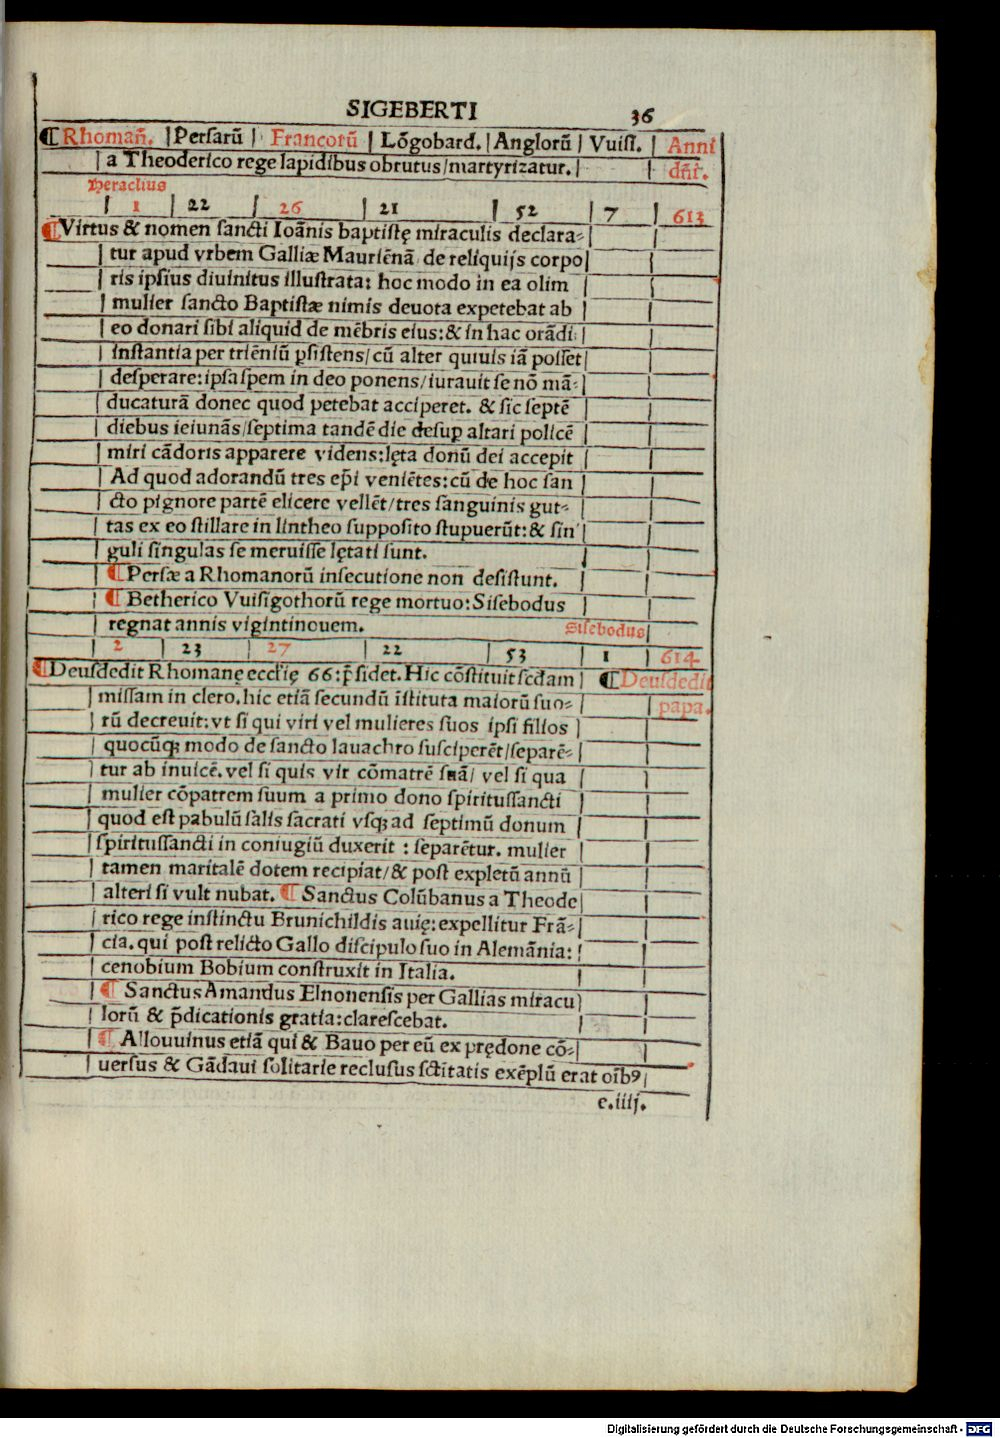 SIGEBERTI 36
¶ Rhomañ. | Persarū | Francorū | Lōgobard. | Anglorū | Vuisi. | Anni
a Theoderico rege lapidibus obrutus/martyrizatur. dñi.
Heraclius
1 | 22 | 26 | 21 | 52 | 7 | 613
¶Virtus & nomen sancti Ioānis baptistę miraculis declara⸗
tur apud vrbem Galliæ Mauriēnā de reliquijs corpo
ris ipsius diuinitus illustrata: hoc modo in ea olim
mulier sancto Baptistæ nimis deuota expetebat ab
eo donari sibi aliquid de mēbris eius:& in hac orādi
instantia per triēniū ꝑsistens/cū alter quiuis iā posset
desperare:ipsa spem in deo ponens/iurauit se nō mā⸗
ducaturā donec quod petebat acciperet. & sic septē
diebus ieiunās/septima tandē die desuꝑ altari policē
miri cādoris apparere videns:lęta donū dei accepit
Ad quod adorandū tres ep̄i veniētes:cū de hoc san
cto pignore partē elicere vellēt/tres sanguinis gut⸗
tas ex eo stillare in lintheo supposito stupuerūt:& sin
guli singulas se meruisse lętati sunt.
¶Persæ a Rhomanorū insecutione non desistunt.
¶ Betherico Vuisigothorū rege mortuo:Sisebodus
regnat annis vigintinouem. Sisebodus
2 | 23 | 27 | 22 | 53 | 1 | 614
¶Deusdedit Rhomanę eccl̄ię 66:p̄sidet. Hic cōstituit scdam ¶Deusdedit
missam in clero. hic etiā secundū īstituta maiorū suo⸗ papa.
rū decreuit:vt si qui viri vel mulieres suos ipsi filios
quocūqꝫ modo de sancto lauachro susciperēt/separē⸗
tur ab inuicē. vel si quis vir cōmatrē suā/ vel si qua
mulier cōpatrem suum a primo dono spiritussancti
quod est pabulū salis sacrati vsqꝫ ad septimū donum
spiritussancti in coniugiū duxerit : separētur. mulier
tamen maritalē dotem recipiat/& post expletū annū
alteri si vult nubat. ¶ Sanctus Colūbanus a Theode
rico rege instinctu Brunichildis auię:expellitur Frā⸗
cia. qui post relicto Gallo discipulo suo in Alemānia:
cenobium Bobium construxit in Italia.
¶ Sanctus Amandus Elnonensis per Gallias miracu
lorū & p̄dicationis gratia:clarescebat.
¶ Allouuinus etiā qui & Bauo per eū ex prędone cō⸗
uersus & Gādaui solitarie reclusus sctitatis exēplū erat oībꝰ
e.iiij.
Digitalisierung gefördert durch die Deutsche Forschungsgemeinschaft - DFG